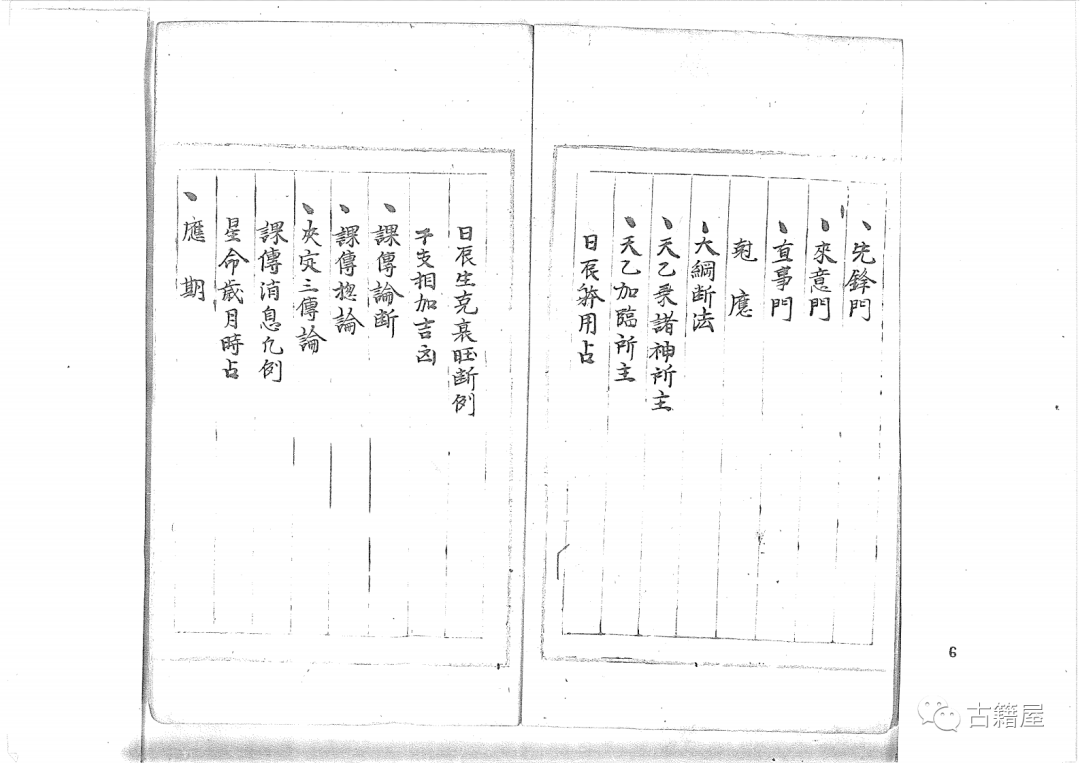 、先鋒門
、來意門
、直事門
尅應
、大綱断法
、天乙乗諸神所主
、天乙加臨所主
日辰發用占
日辰生克衰旺断例
干支相加吉凶
、課傳論断
、課傳揔論
、決定三傳論
課傳消息九例
星命歲月時占
、應期
6
古籍屋